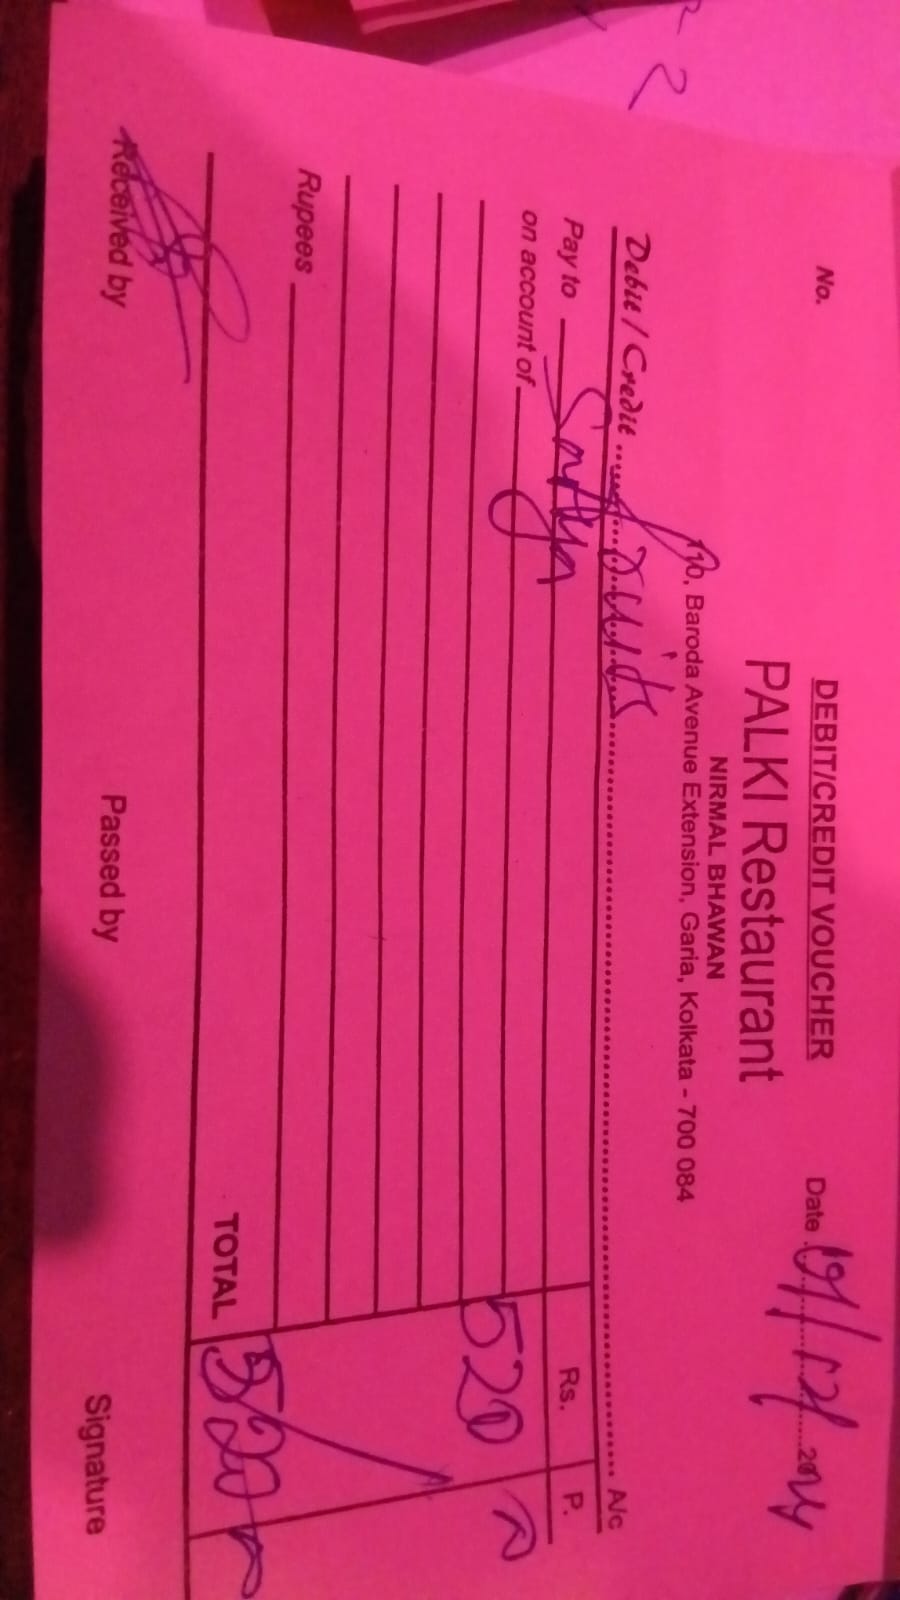 DEBIT/CREDIT VOUCHER
No. Date 19/12/2024
PALKI Restaurant
NIRMAL BHAWAN
170, Baroda Avenue Extension, Garia, Kolkata - 700 084
Debit / Credit A/c
Pay to Rs. P.
on account of 520
Rupees
TOTAL 520
Received by Passed by Signature